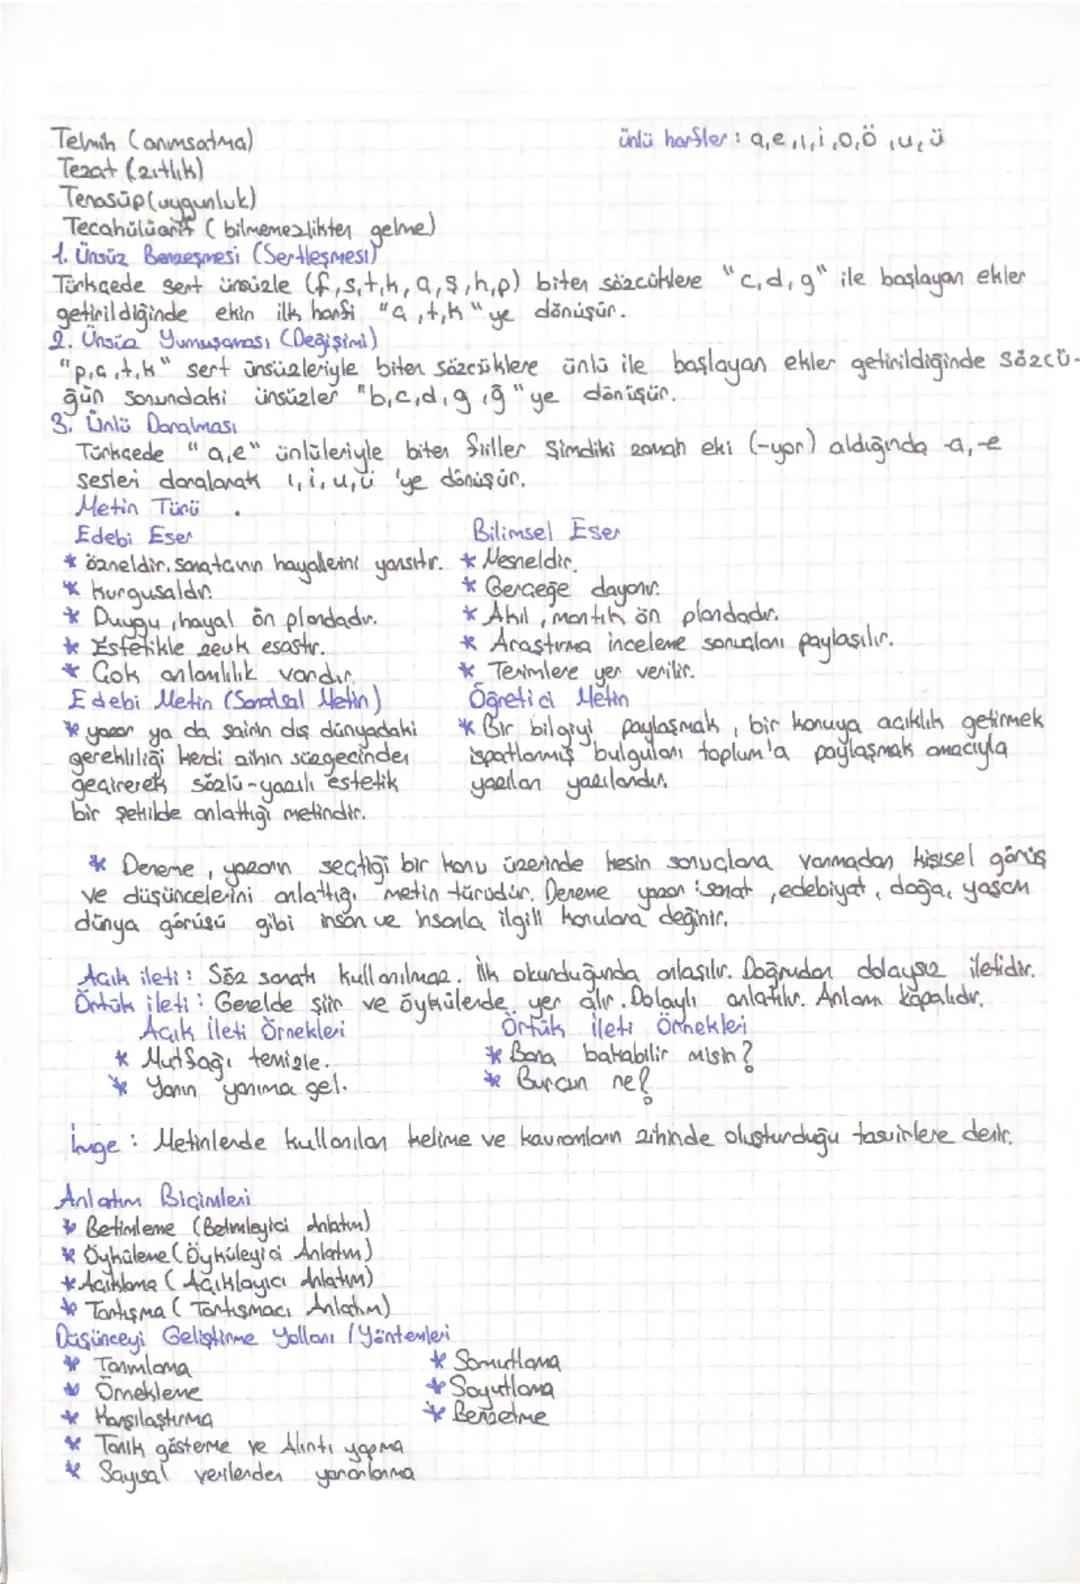 Telmih (anımsatma)
ünlü harfler : a,e,ı,i,o,ö,u,ü
Tezat (zıtlık)
Tenasüp (uygunluk)
Tecahülüarif ( bilmemezlikten gelme)
1. Ünsüz Benzeşmesi (Sertleşmesi)
Türkçede sert ünsüzle (f,s,t,k,ç,ş,h,p) biten sözcüklere "c,d,g" ile başlayan ekler
getirildiğinde ekin ilk harfi "ç,t,k" ye dönüşür.
2. Ünsüz Yumuşaması (Değişimi)
"p,ç,t,k" sert ünsüzleriyle biten sözcüklere ünlü ile başlayan ekler getirildiğinde sözcü-
ğün sonundaki ünsüzler "b,c,d,g,ğ"ye dönüşür.
3. Ünlü Daralması
Türkçede "a,e" ünlüleriyle biten fiiller şimdiki zaman eki (-yor) aldığında -a,-e
sesleri daralarak ı,i,u,ü 'ye dönüşür.
Metin Türü
Edebi Eser
* özneldir. sanatçının hayallerini yansıtır.
* Kurgusaldır.
* Duygu, hayal ön plandadır.
* Estetikle zevk esastır.
* Çok anlamlılık vardır.
Bilimsel Eser
* Nesneldir.
* Gerçeğe dayanır.
* Akıl, mantık ön plandadır.
* Araştırma inceleme sonuçları paylaşılır.
* Terimlere yer verilir.
Edebi Metin (Sanatsal Metin)
* yazar ya da şairin dış dünyadaki
gerekliliği kendi zihin süzgecinden
geçirerek sözlü-yazılı estetik
bir şekilde anlattığı metindir.
Öğretici Metin
* Bir bilgiyi paylaşmak, bir konuya açıklık getirmek
ispatlanmış bulguları toplum'a paylaşmak amacıyla
yazılan yazılardır.
* Deneme, yazarın seçtiği bir konu üzerinde kesin sonuçlara varmadan kişisel görüş
ve düşüncelerini anlattığı metin türüdür. Deneme yazarı sanat, edebiyat, doğa, yaşam
dünya görüşü gibi insan ve insanla ilgili konulara değinir.
Açık ileti : Söz sanatı kullanılmaz. İlk okunduğunda anlaşılır. Doğrudan dolaysız iletidir.
Örtük ileti : Genelde şiir ve öykülerde yer alır. Dolaylı anlatılır. Anlam kapalıdır.
Açık İleti Örnekleri
* Mutfağı temizle.
* Yanın yanıma gel.
Örtük ileti Örnekleri
* Bana bakabilir misin?
* Burcun ne?
İmge : Metinlerde kullanılan kelime ve kavramların zihinde oluşturduğu tasvirlere denir.
Anlatım Biçimleri
* Betimleme (Betimleyici Anlatım)
* Öyküleme (Öyküleyici Anlatım)
* Açıklama ( Açıklayıcı Anlatım)
* Tartışma ( Tartışmacı Anlatım)
Düşünceyi Geliştirme Yolları / Yöntemleri
* Tanımlama
* Örnekleme
* Karşılaştırma
* Tanık gösterme ve Alıntı yapma
* Sayısal verilerden yararlanma
* Somutlama
* Soyutlama
* Benzetme